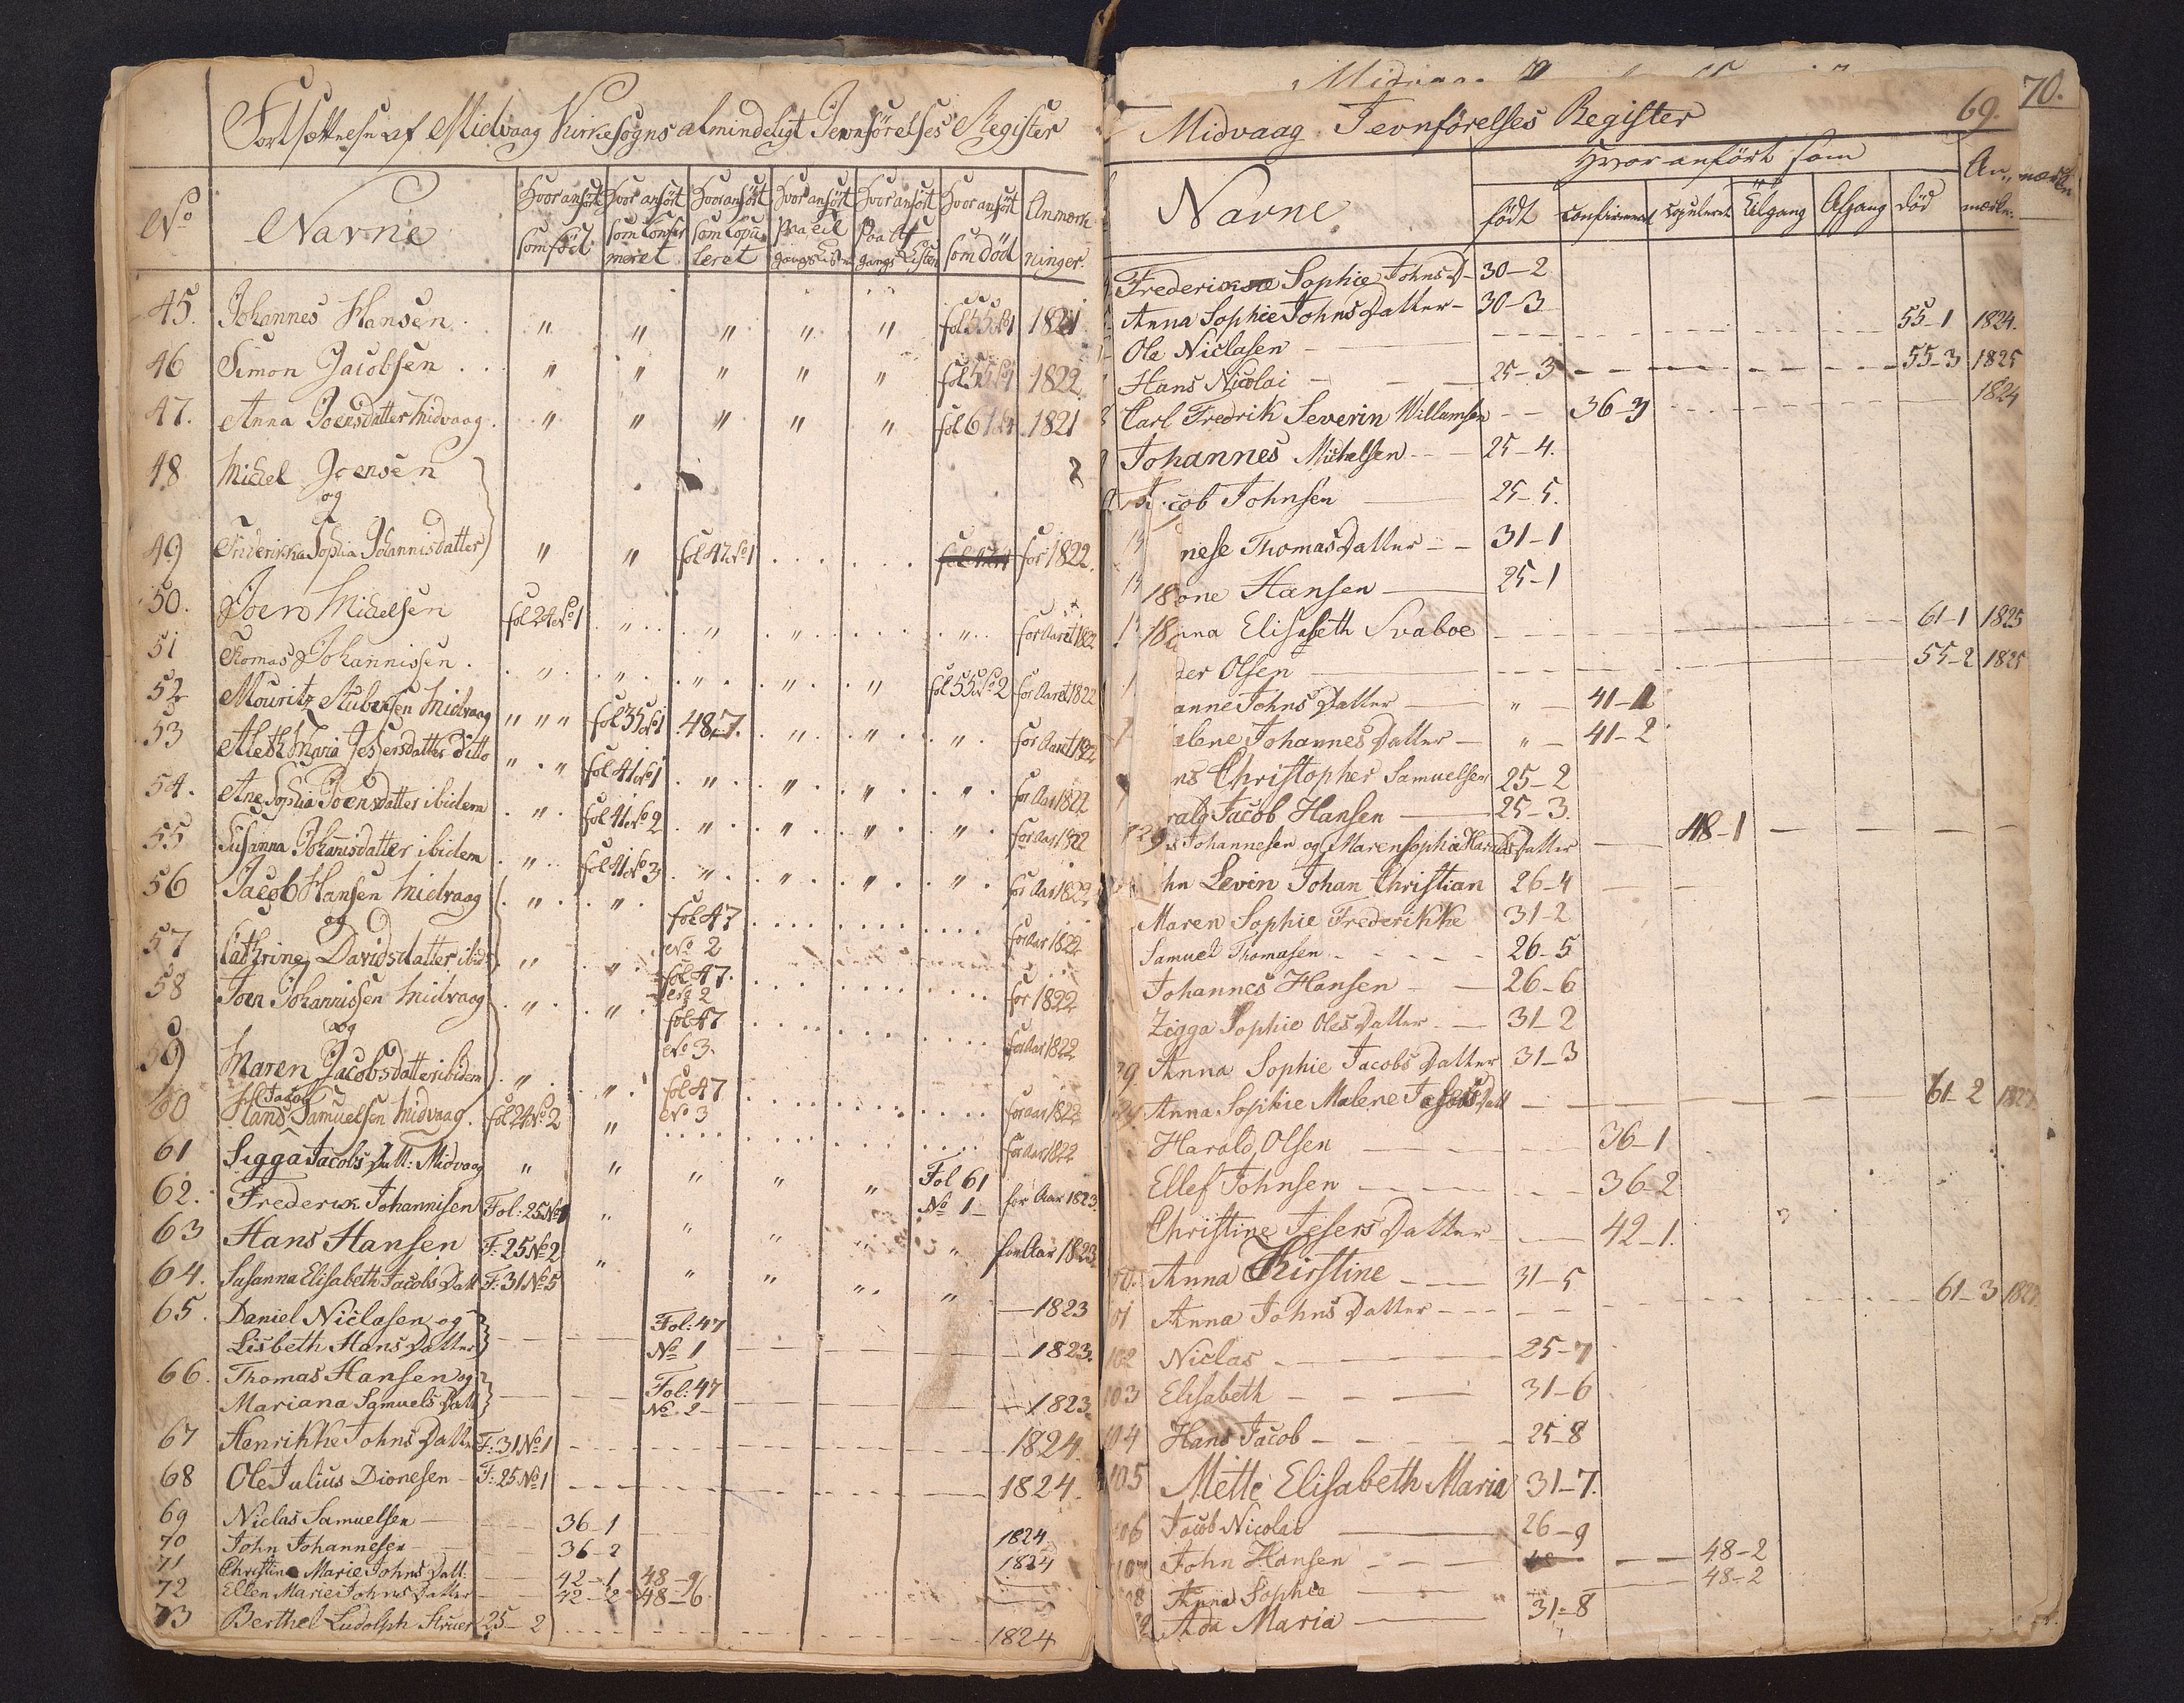 Fortsættelse af Midvaag Kirkesogns almindeligt Jevnförelses Register
No Navne Hvor anfört som föd: Hvor anfört som Confirmeret Hvor anfört som Copuleret Hvor anfört Paa Til gangs Listen Hvor anfört Paa Af gangs Listen Hvor anfört som död Anmærkninger.
45. Johannes Hansen " " " " " fol 55 No 1 1821
46 Simon Jacobsen " " " " " fol 55 No 1 1822
47. Anna Joensdatter Midvaag. " " " " " fol 61 1821
48 Michel Joensen
og
49 Friderikka Sophia Johannisdatter " " fol 47 No 1 for 1822.
50. Joen Michelsen fol 24 No 1 " " " " for Aaret 1822
51 Thomas Johannissen. " " " " " fol 55 No 2 for Aaret 1822
52 Mouritz Midvaag " " " fol 35 No 1 48-7. " " " for Aaret 1822
53 Aleth Maria Jessersdatter ditto " " fol 41 No 1 " " " " for Aar 1822
54. Ane Sophia Joensdatter ibidem " fol 41 No 2 " " " " for Aar 1822
55 Susanna Johannisdatter ibidem " fol 41 No 3 " " " " for Aar 1822
56 Jacob Hansen Midvaag " " fol 47 No 2 for Aar 1822
og
57 Cathrine Davidsdatter ibid: " " fol 47. No 2 for 1822
58 Joen Johannissen Midvaag " " fol 47 No 3. for Aar 1822
og
59 Maren Jacobsdatter ibidem " " fol 47 No 3 for aar 1822
60 Hans Jacob Samuelsen Midvaag. fol 24 No 2 " for Aar 1822
61 Sigga Jacobs Datt: Midvaag " " " " " Fol 61 No 1 for Aar 1823.
62. Frederik Johannisen Fol: 25 No 1 " " " " " for Aar 1823
63 Hans Hansen F: 25 No 2 " " " " "
64. Susanna Elisabeth Jacobs Datt F: 31 No 5 1823
65. Daniel Niclasen og
Lisbeth Hans Datter Fol: 47 No 1 1823.
66. Thomas Hansen og
Mariana Samuels Datt Fol: 47 No 2 1823.
67 Henrikke Johns Datter F: 31 No 1 1824.
68 Ole Julius Dionesen F: 25 No 1 1824.
69 Niclas Samuelsen 36-1
70 John Johannesen 36-2 1824
71 Christine Marie Johns Datt: 42-1 48-9 1824
72 Ellen Marie Johns Datter 42-2 48-6
73 Berthel Ludolph Struer 25-2 1824
70.
Midvaag Jevnförelses Register 69.
Navne Hvor anfört som Anmærkn.
födt Confirmeret Copuleret Tilgang Afgang död
Frederikke Sophie Johns D 30-2
Anna Sophie Johns Datter 30-3
Ole Niclasen 55-1 1824.
Hans Nicolai 25-3 55-3 1825
Carl Fredrik Severin Willumsen 36-3 1824
Johannes Michelsen 25-4.
Jacob Johnsen 25-5.
nese Thomas Datter 31-1
18 one Hansen 25-1
18 nna Elisabeth Svaboe 61-1 1825
der Olsen 55-2 1825
anne Johns Datter " 41-1
alene Johannes Datter " 41-2
ns Christopher Samuelsen 25-2
rald Jacob Hansen 25-3.
Johannesen og Maren Sophie Haralds Datter 48-1
hn Levin Johan Christian 26-4
Maren Sophie Frederikke 31-2
Samuel Thomasen 26-5
Johannes Hansen 26-6
Zigga Sophie Oles Datter 31-2
Anna Sophie Jacobs Datter 31-3
Anna Sophie Malene Jacobs Datt 61-2
Harald Olsen 36-1
Ellef Johnsen 36-2
Christine Jesers Datter 42-1.
Anna Kirstine 31-5
01 Anna Johns Datter 61-3
102 Niclas 25-7
103 Elisabeth 31-6
104 Hans Jacob 25-8
105 Mette Elisabeth Maria 31-7.
106 Jacob Nicolai 26-9
107 John Hansen 48-2
08 Anna Sophia 48-2
Ada Maria 31-8